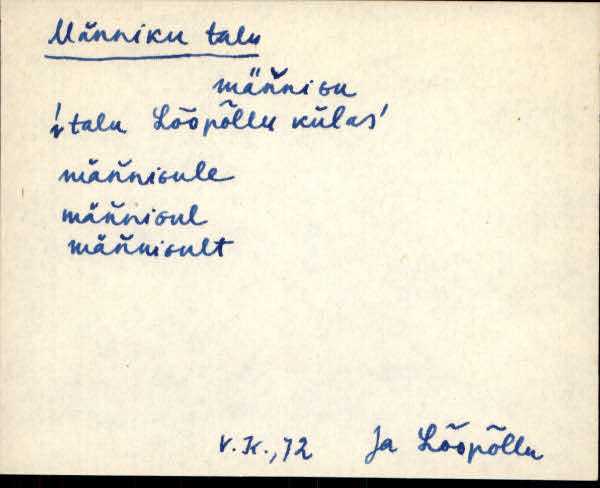 Männiku talu
männiɢu
'talu Lõõpõllu külas'
männiɢule
männiɢul
männiɢult
V.K.,72 Ja Lõõpõllu